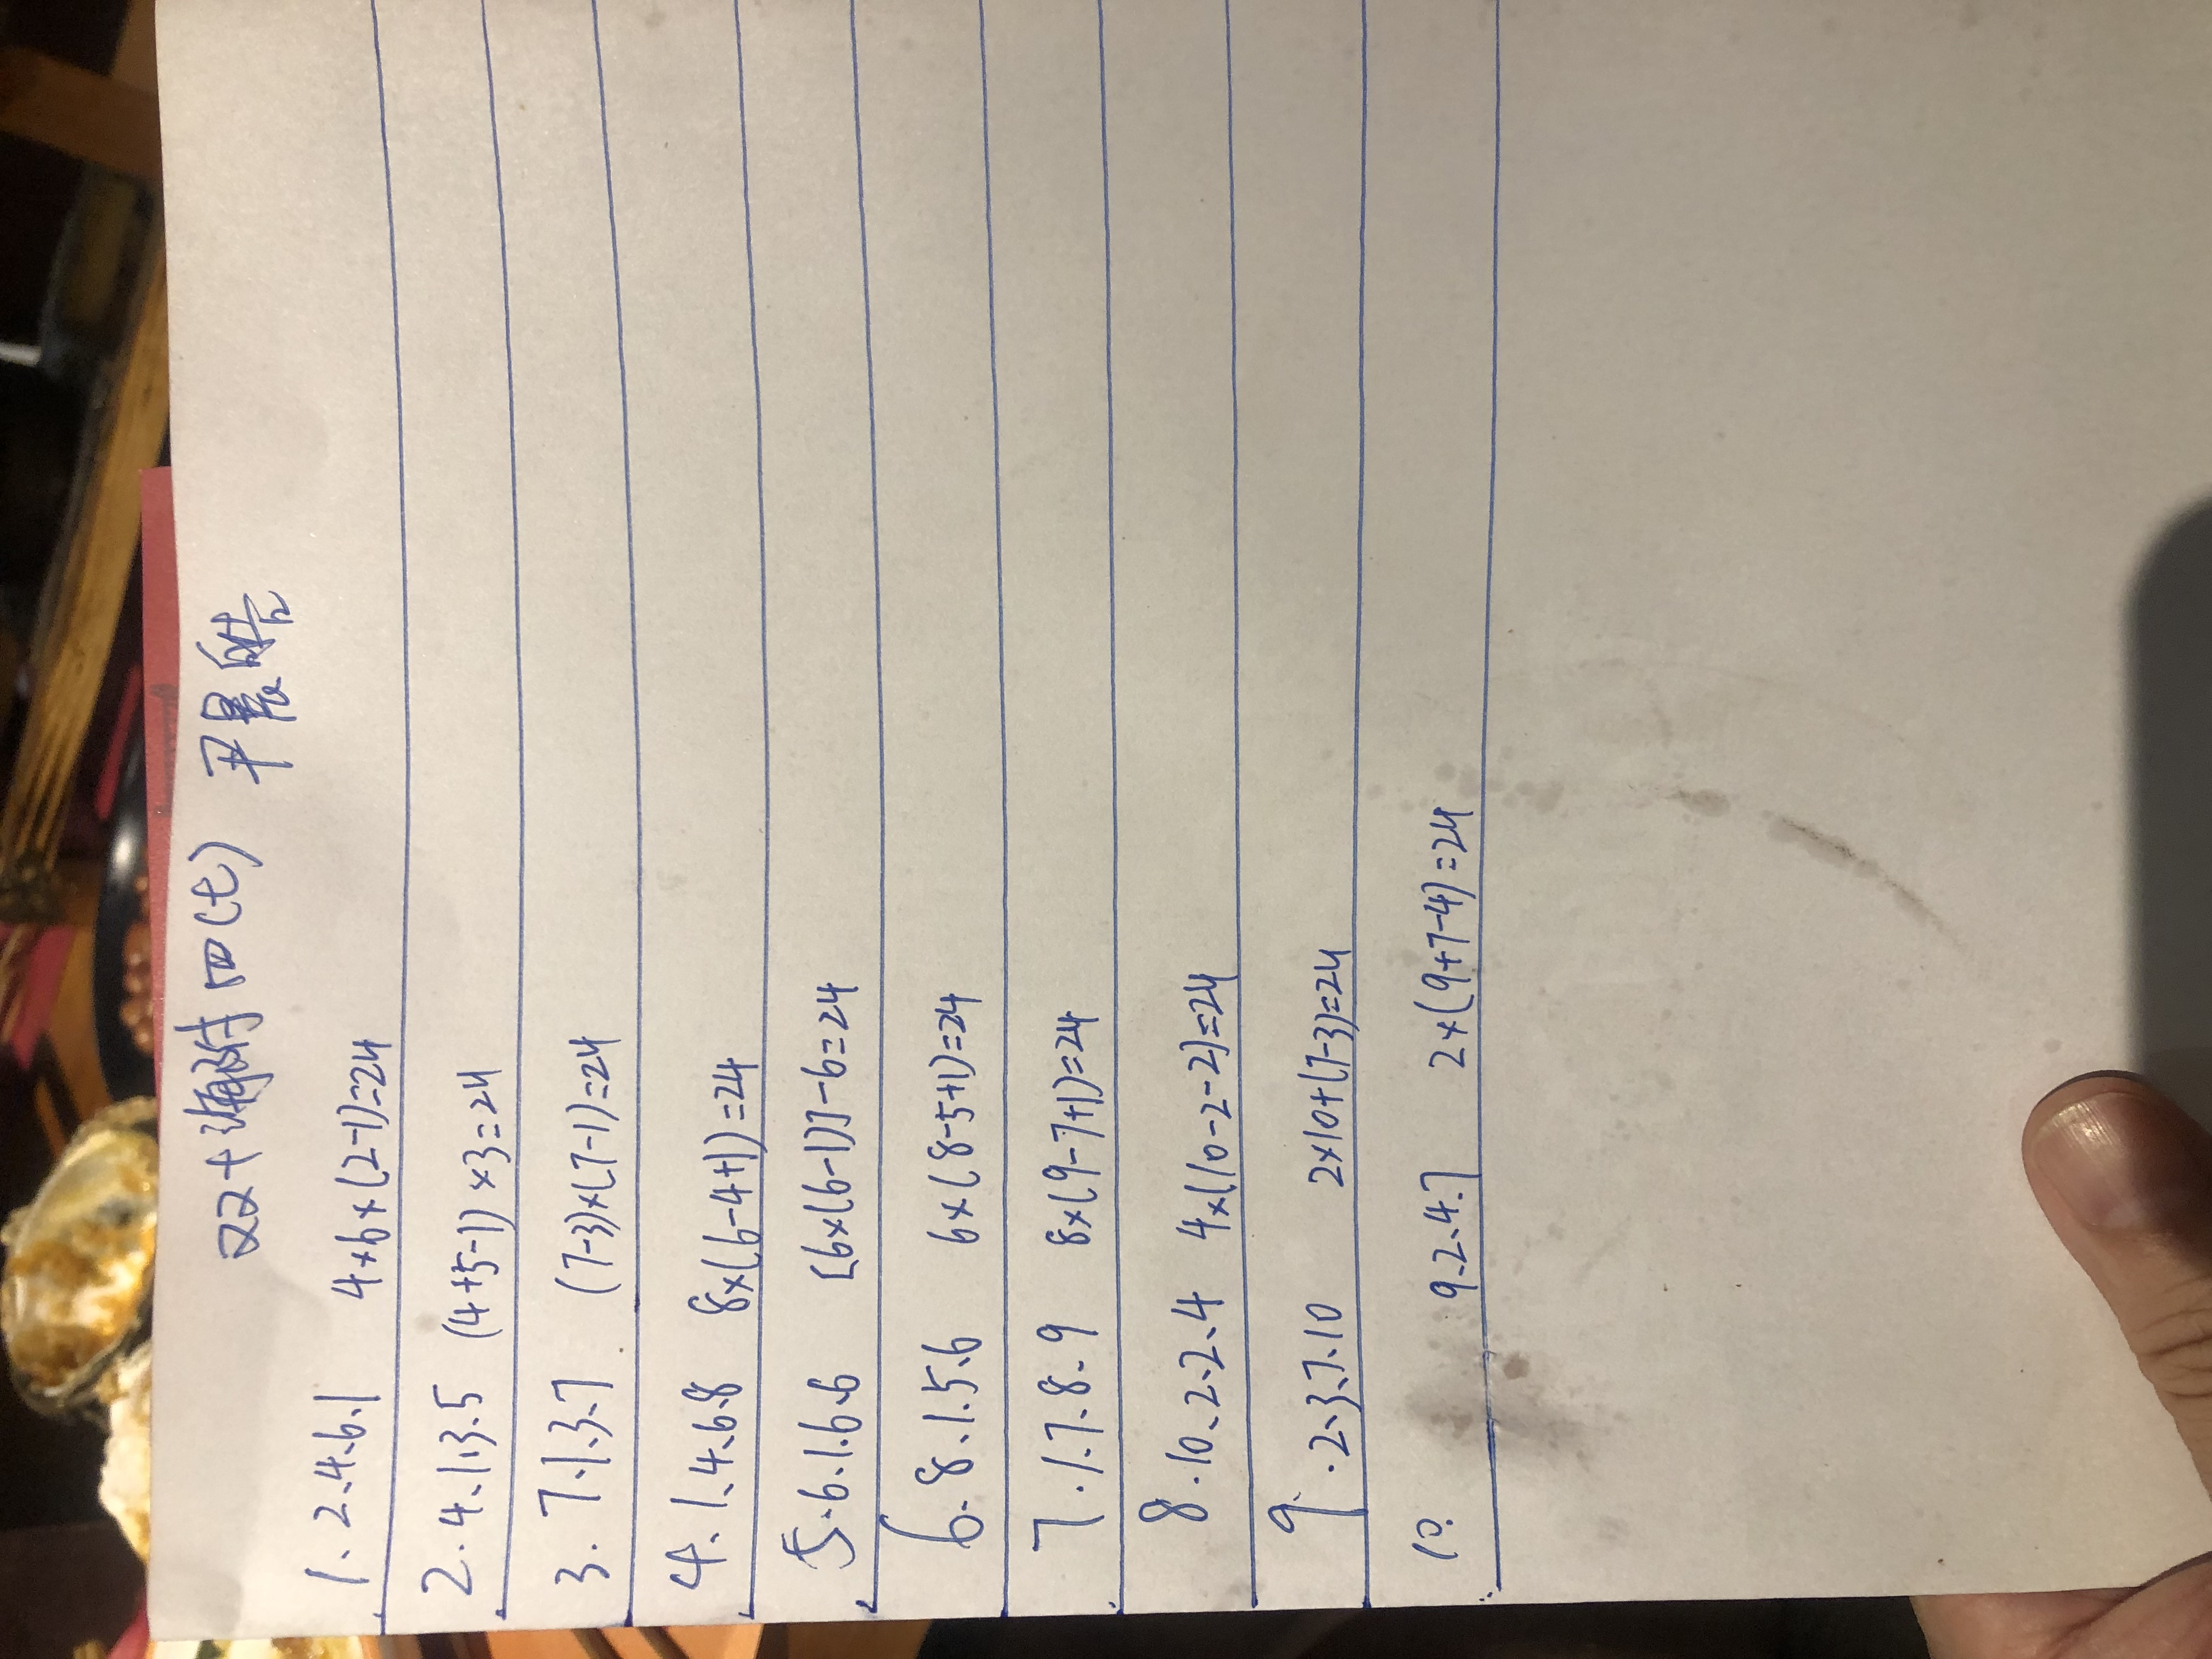 四(七) 尹晨皓
1. 2.4.6.1 4×6×(2-1)=24
2. 4.1.3.5 (4+5-1)×3=24
3. 7.1.3.7 (7-3)×(7-1)=24
4. 1.4.6.8 8×(6-4+1)=24
5. 6.1.6.6 [6×(6-1)]-6=24
6. 8.1.5.6 6×(8-5+1)=24
7. 1.7.8.9 8×(9-7+1)=24
8. 10.2.2.4 4×(10-2-2)=24
9. 2.3.7.10 2×10+(7-3)=24
10. 9.2.4.7 2×(9+7-4)=24